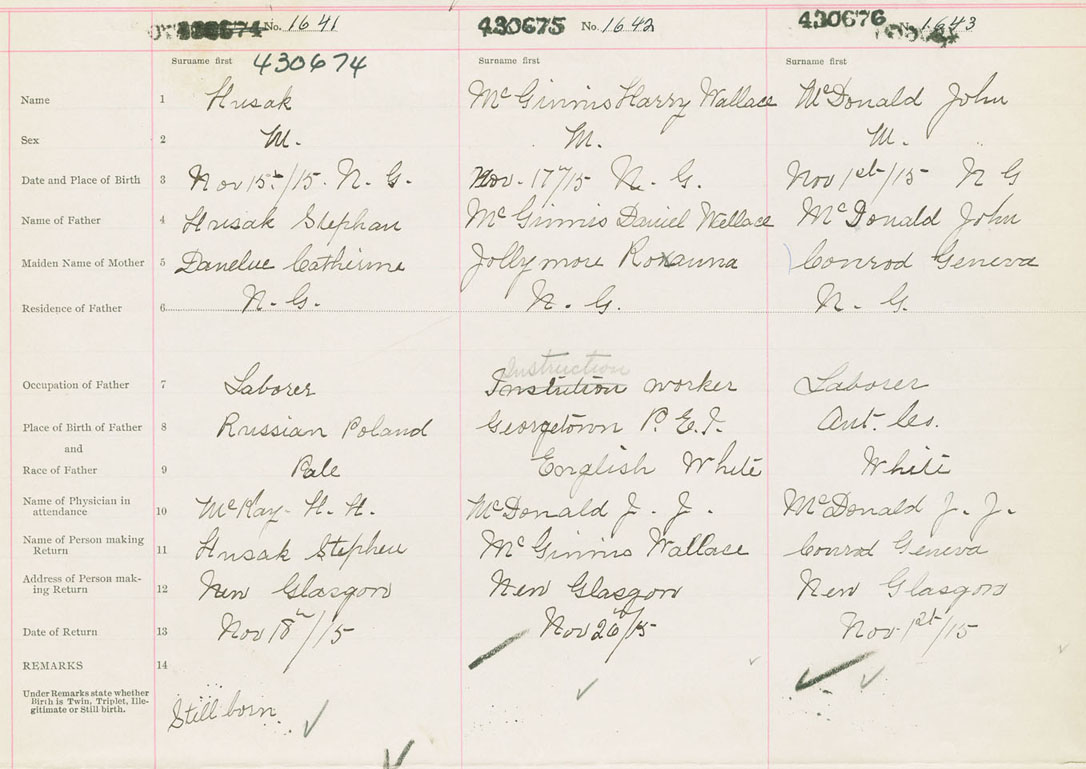 No. 1641 430675 No. 1642 430676 No. 1643
Surname first 430674 Surname first Surname first
Name 1 Husak McGinnis Harry Wallace McDonald John
Sex 2 M. M. M.
Date and Place of Birth 3 Nov 15th/15. N. G. Nov. 17th/15 N. G. Nov 1st/15 N G
Name of Father 4 Husak Stephan McGinnis Daniel Wallace McDonald John
Maiden Name of Mother 5 Danelue Catherine Jollymore Roxanna Conrod Geneva
Residence of Father 6 N. G. N. G. N. G.
Instruction
Occupation of Father 7 Laborer Instrution worker Laborer
Place of Birth of Father 8 Russian Poland Georgetown P. E. I. Ant. Co.
and
Race of Father 9 Pole English White White
Name of Physician in
attendance 10 McKay H. H. McDonald J. J. McDonald J. J.
Name of Person making
Return 11 Husak Stephen McGinnis Wallace Conrod Geneva
Address of Person mak-
ing Return 12 New Glasgow New Glasgow New Glasgow
Date of Return 13 Nov 18th/15 Nov 26th/15 Nov 1st/15
REMARKS 14
Under Remarks state whether
Birth is Twin, Triplet, Ille-
gitimate or Still birth.
Still born